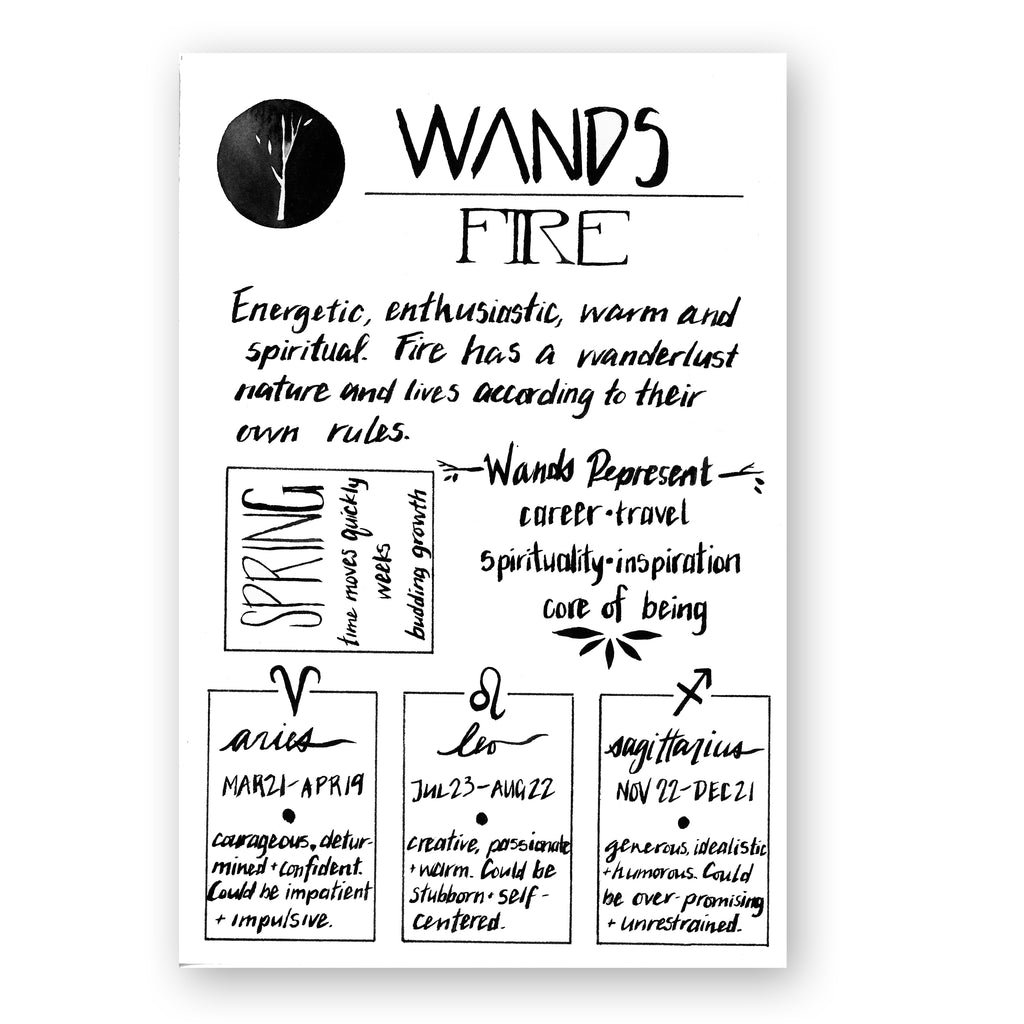 WANDS
FIRE
Energetic, enthusiastic, warm and
spiritual. Fire has a wanderlust
nature and lives according to their
own rules.
SPRING
time moves quickly
weeks
budding growth
Wands Represent
career•travel
spirituality•inspiration
core of being
aries
MAR21-APR19
courageous, detur-
mined + confident.
Could be impatient
+ impulsive.
leo
JUL23-AUG22
creative, passionate
+ warm. Could be
stubborn + self-
centered.
sagittarius
NOV 22-DEC21
generous, idealistic
+ humorous. Could
be over-promising
+ unrestrained.